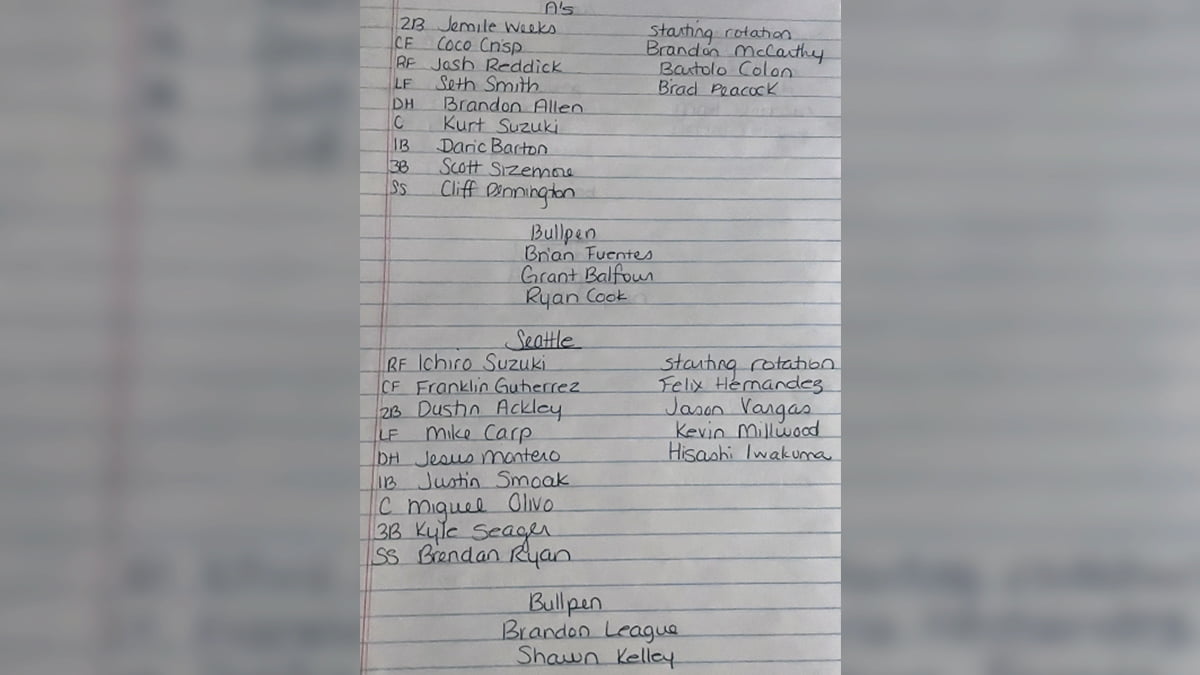 A's
2B Jemile Weeks
CF Coco Crisp
RF Josh Reddick
LF Seth Smith
DH Brandon Allen
C Kurt Suzuki
1B Daric Barton
3B Scott Sizemore
SS Cliff Pennington
Starting rotation
Brandon McCarthy
Bartolo Colon
Brad Peacock
Bullpen
Brian Fuentes
Grant Balfour
Ryan Cook
Seattle
RF Ichiro Suzuki
CF Franklin Gutierrez
2B Dustin Ackley
LF Mike Carp
DH Jesus Montero
1B Justin Smoak
C Miguel Olivo
3B Kyle Seager
SS Brendan Ryan
Starting rotation
Felix Hernandez
Jason Vargas
Kevin Millwood
Hisashi Iwakuma
Bullpen
Brandon League
Shawn Kelley